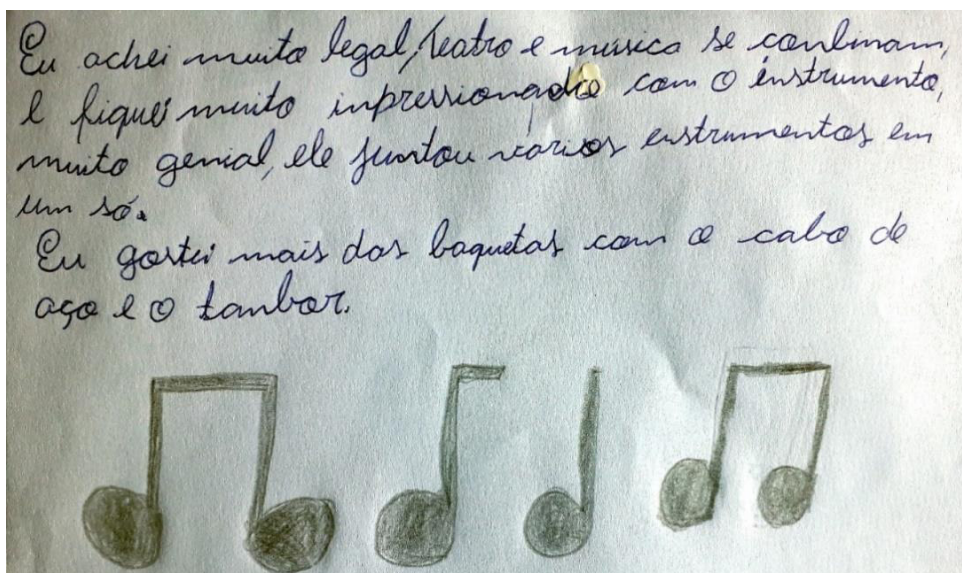 Eu achei muito legal, teatro e música se conbinam,
e fiquei muito inpressionado com o instrumento,
muito genial, ele juntou varios enstrumentos em
um só.
Eu gostei mais das baquetas com o cabo de
aço e o tanbor.